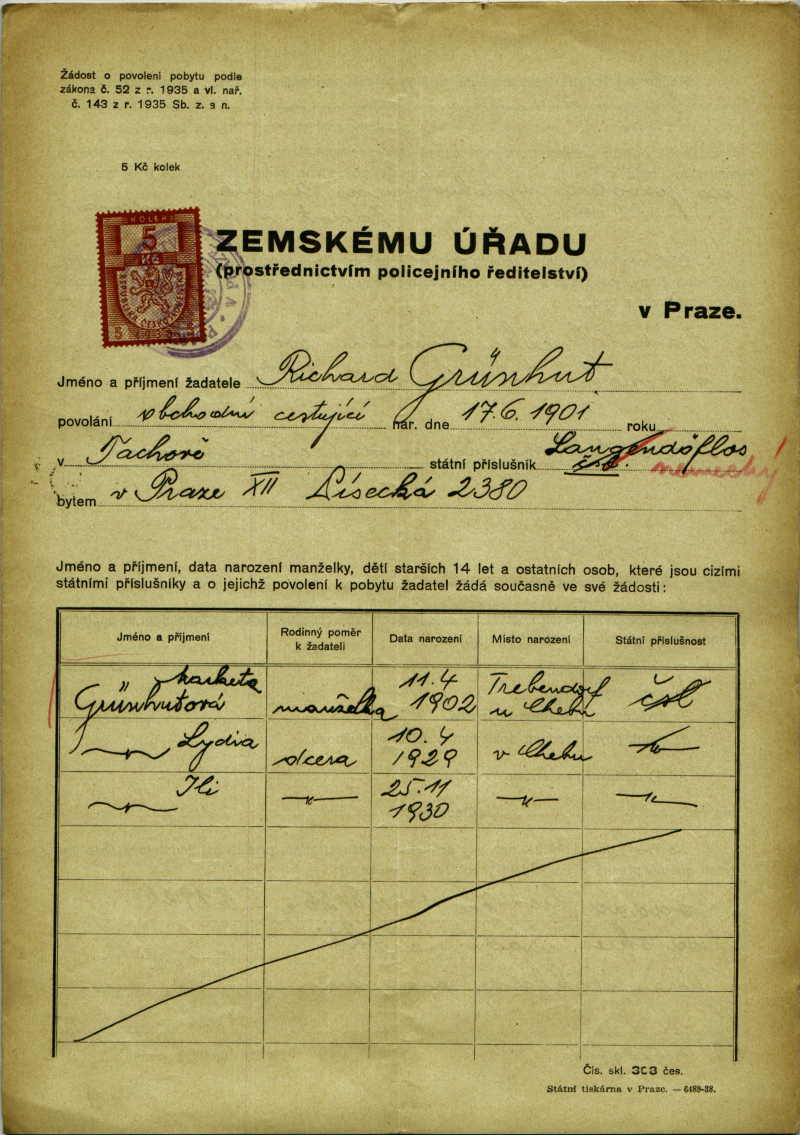 Žádost o povolení pobytu podle
zákona č. 52 z r. 1935 a vl. nař.
č. 143 z r. 1935 Sb. z. a n.
5 Kč kolek
KOLEK
5
Kč
ZEMSKÉMU ÚŘADU
(prostřednictvím policejního ředitelství)
v Praze.
Jméno a příjmení žadatele Richard Grünhut
povolání obchodní cestující nar. dne 17.6. 1901 roku
v Tachově státní příslušník čs.
německý!
bytem v Praze XII Lísecká 2380
Jméno a příjmení, data narození manželky, dětí starších 14 let a ostatních osob, které jsou cizími
státními příslušníky a o jejichž povolení k pobytu žadatel žádá současně ve své žádosti:
Jméno a příjmení Rodinný poměr k žadateli Data narození Místo narození Státní příslušnost
Grünhutová Marketa manželka 11.4 1902 Trebendorf u Chebu čsl
Lydia dcera 10.4 1929 v Chebu
Ili 25.11 1930
Čís. skl. 303 čes.
Státní tiskárna v Praze. — 6489-38.